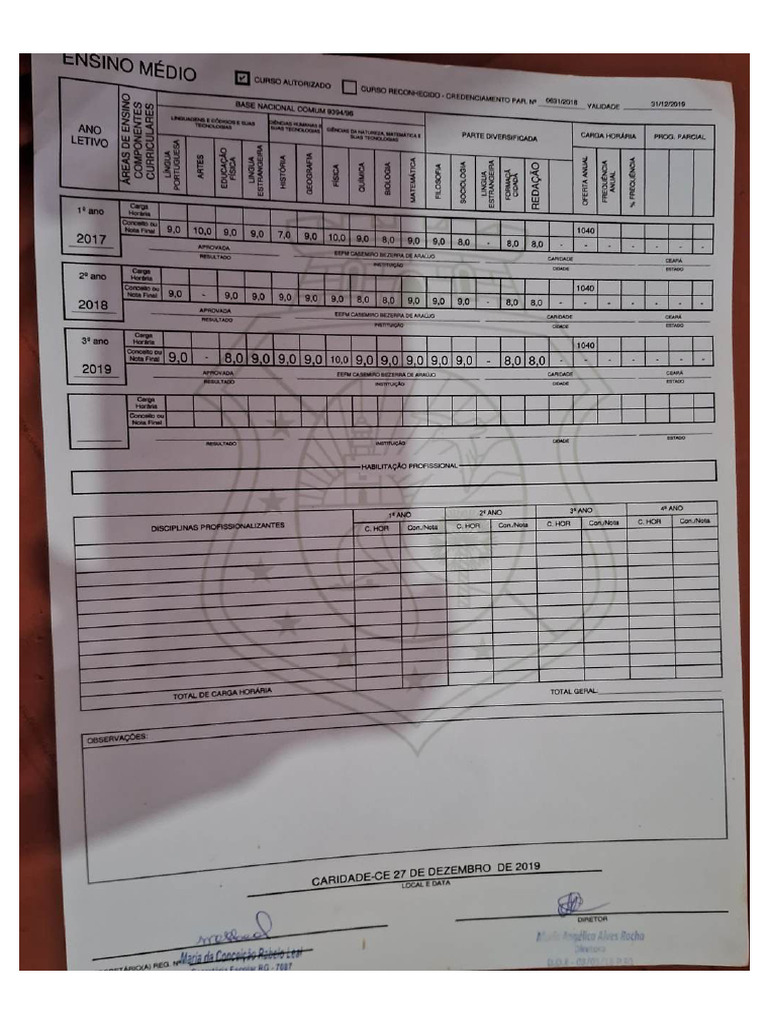 ENSINO MÉDIO
✓ CURSO AUTORIZADO CURSO RECONHECIDO - CREDENCIAMENTO PAR. Nº 0631/2018 VALIDADE 31/12/2019
ANO LETIVO
ÁREAS DE ENSINO COMPONENTES CURRICULARES
BASE NACIONAL COMUM 9394/96
LINGUAGENS E CÓDIGOS E SUAS TECNOLOGIAS
CIÊNCIAS HUMANAS E SUAS TECNOLOGIAS
CIÊNCIAS DA NATUREZA, MATEMÁTICA E SUAS TECNOLOGIAS
PARTE DIVERSIFICADA
CARGA HORÁRIA
PROG. PARCIAL
LÍNGUA PORTUGUESA
ARTES
EDUCAÇÃO FÍSICA
LÍNGUA ESTRANGEIRA
HISTÓRIA
GEOGRAFIA
FÍSICA
QUÍMICA
BIOLOGIA
MATEMÁTICA
FILOSOFIA
SOCIOLOGIA
LÍNGUA ESTRANGEIRA
FORMAÇÃO CIDADÃ
REDAÇÃO
OFERTA ANUAL
FREQUÊNCIA ANUAL
% FREQUÊNCIA
1º ano
2017
Carga Horária 1040
Conceito ou Nota Final 9,0 10,0 9,0 9,0 7,0 9,0 10,0 9,0 8,0 9,0 9,0 8,0 - 8,0 8,0 - - - - - -
APROVADA EEFM CASEMIRO BEZERRA DE ARAÚJO CARIDADE CEARÁ
RESULTADO INSTITUIÇÃO CIDADE ESTADO
2º ano
2018
Carga Horária 1040
Conceito ou Nota Final 9,0 - 9,0 9,0 9,0 9,0 9,0 8,0 8,0 9,0 9,0 9,0 - 8,0 8,0 - - - - - -
APROVADA EEFM CASEMIRO BEZERRA DE ARAÚJO CARIDADE CEARÁ
RESULTADO INSTITUIÇÃO CIDADE ESTADO
3º ano
2019
Carga Horária 1040
Conceito ou Nota Final 9,0 - 8,0 9,0 9,0 9,0 10,0 9,0 9,0 9,0 9,0 9,0 - 8,0 8,0 - - - - - -
APROVADA EEFM CASEMIRO BEZERRA DE ARAÚJO CARIDADE CEARÁ
RESULTADO INSTITUIÇÃO CIDADE ESTADO
Carga Horária
Conceito ou Nota Final
RESULTADO INSTITUIÇÃO CIDADE ESTADO
HABILITAÇÃO PROFISSIONAL
DISCIPLINAS PROFISSIONALIZANTES
1º ANO 2º ANO 3º ANO 4º ANO
C. HOR Con./Nota C. HOR Con./Nota C. HOR Con./Nota C. HOR Con./Nota
TOTAL DE CARGA HORÁRIA TOTAL GERAL:
OBSERVAÇÕES:
CARIDADE-CE 27 DE DEZEMBRO DE 2019
LOCAL E DATA
DIRETOR
Maria Angélica Alves Rocha
Diretora
SECRETÁRIO(A) REG. Nº
Maria da Conceição Rabelo Leal
Secretária Escolar RG - 7087